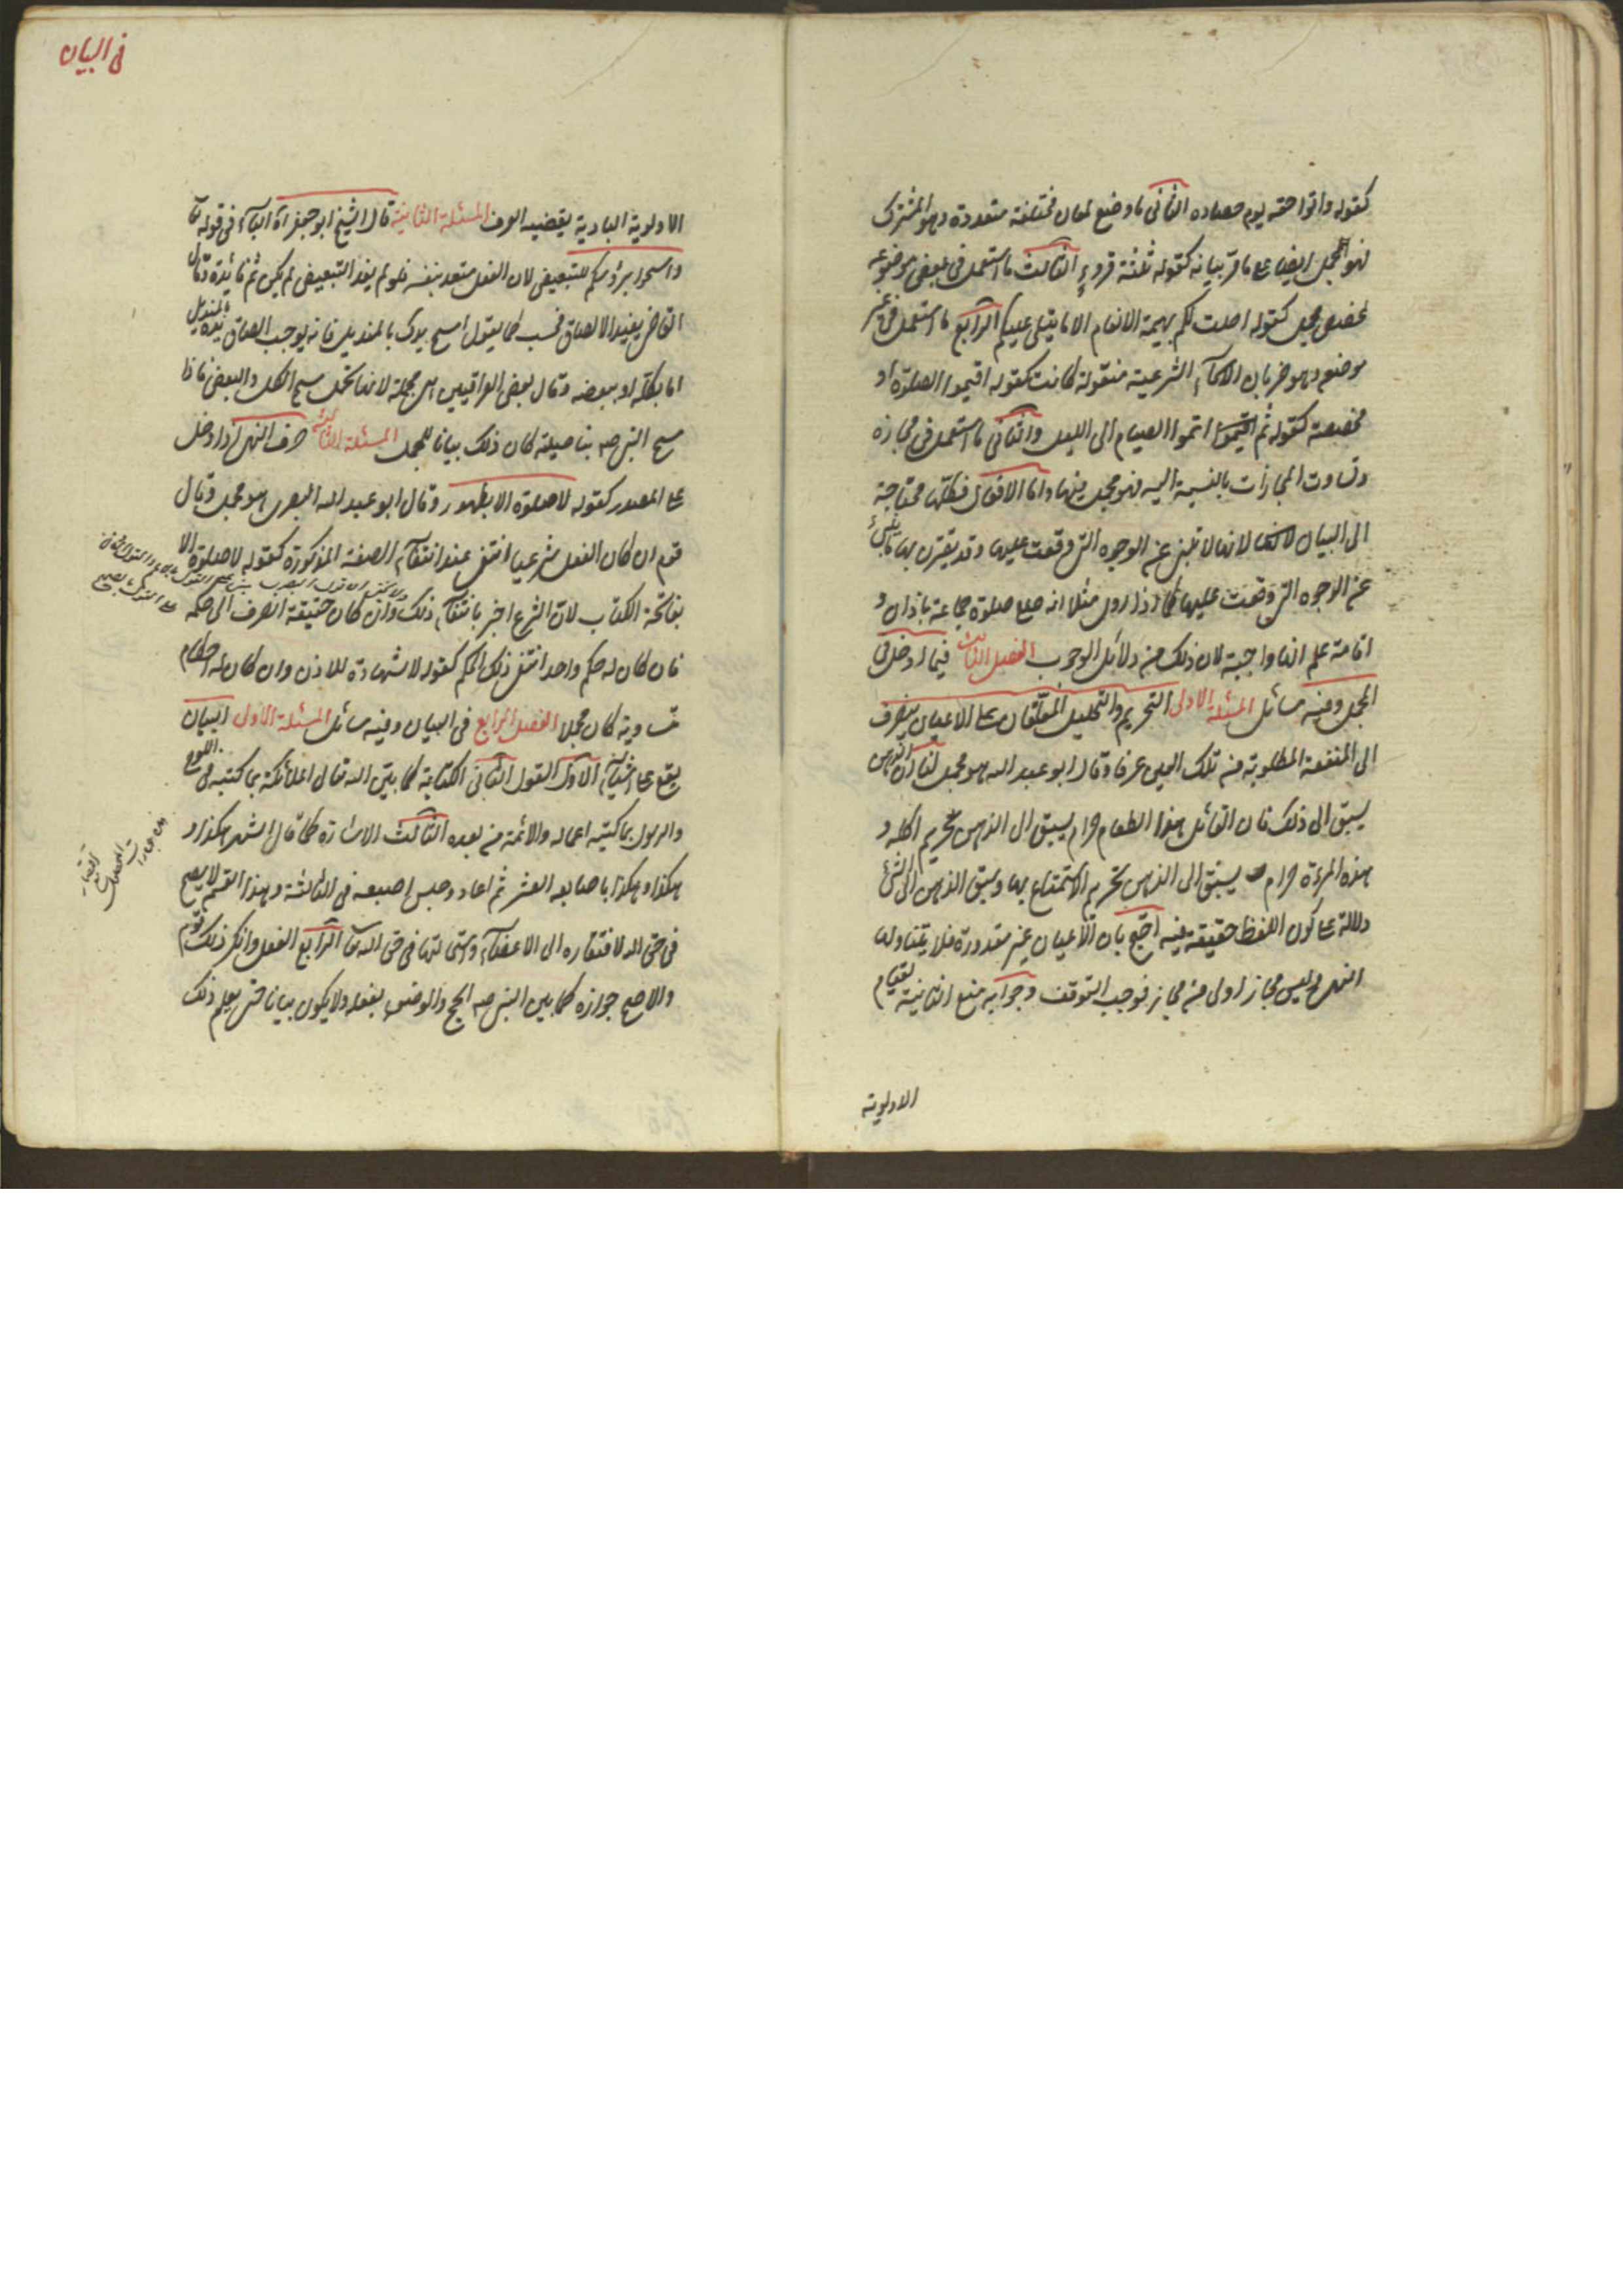 كقوله واتوا حقه يوم حصاده الثانى ما وضع لمعان مختلفة متعددة وهو المشترك
فهو المجمل ايضا على ما مر بيانه كقوله ثلثة قروء الثالث ما استعمل فى بعض موضوعه
لمخصص مجمل كقوله احلت لكم بهيمة الانعام الا ما يتلى عليكم الرابع ما استعمل فى غير
موضعه وهو ضربان الاسمآء الشرعية منقولة كانت كقوله اقيموا الصلوة او
مخصصة كقوله ثم اتموا الصيام الى الليل والثانى ما استعمل فى مجازه
وتساوت المجازات بالنسبة اليه فهو مجمل فيها واما الافعال فكلها محتاجة
الى البيان لانها لا تنبئ عن الوجوه التى وقعت عليها وقد يقترن بها ما ينبئ
عن الوجوه التى وقعت عليها كما اذا روى مثلا انه صلى صلوة جماعة باذان و
اقامة علم انها واجبة لان ذلك من دلائل الوجوب الفصل الثالث فيما ادخل فى
المجمل وفيه مسائل المسئلة الاولى التحريم والتحليل المعلقان على الاعيان ينصرف
الى المنفعة المطلوبة من تلك العين عرفا وقال ابو عبد الله هو مجمل لنا ان الذهن
يسبق الى ذلك فان القائل هذا الطعام حرام يسبق الى الذهن تحريم اكله و
هذه المرءة حرام يسبق الى الذهن تحريم الاستمتاع بها وسبق الذهن الى الشئ
دلالة على كون اللفظ حقيقة فيه احتج بان الاعيان غير مقدورة فلا يتناولها
النهى وليس مجاز اولى من مجاز فوجب التوقف وجوابه منع الثانية لقيام
الاولوية
فى البيان
الاولوية البادية يقضيه العرف المسئلة الثانية قال الشيخ ابو جعفر ان البآء فى قوله تعا
وامسحوا برؤسكم للتبعيض لان الفعل متعد بنفسه فلو لم يفد التبعيض لم يكن ثم فائدة وقال
القاضى يفيد الالصاق فحسب كما يقول امسح يدك بالمنديل فانه يوجب الصاق يده بالمنديل
اما بكله او ببعضه وقال بعض العراقيين هى مجملة لانها تحتمل مسح الكل والبعض فاذا
مسح النبى صه بناصيته كان ذلك بيانا للمجمل المسئلة الثالثة حرف النهى اذا دخل
على المصدر كقوله لا صلوة الا بطهور وقال ابو عبد الله البصرى هو مجمل وقال
قوم ان كان الفعل شرعيا انتفى عند انتفآء الصفة المذكورة كقوله لا صلوة الا
بفاتحة الكتاب لان الشرع اخبر بانتفآء ذلك وان كان حقيقة انصرف الى حكمه
فان كان له حكم واحد انتفى ذلك الحكم كقوله لا شهادة للاذن وان كان له احكام
متساوية كان مجملا الفصل الرابع فى البيان وفيه مسائل المسئلة الاولى البيان
يقع على اشيآء الاول القول الثانى الكتابة كما بين الله تعالى لملائكته بما كتبه فى اللوح
والرسول بما كتبه اعماله والائمة من بعده الثالث الاشارة كما قال الشهر هكذا و
هكذا وهكذا باصابعه العشر ثم اعاد وحبس اصبعه فى الثالثة وهذا القسم لا يصح
فى حق الله لافتقاره الى الاعضآء فى حق الله تعا الرابع الفعل وانكر ذلك قوم
والاصح جوازه كما بين النبى صه الحج والوضوء بفعله ولا يكون بيانا حتى يعلم ذلك